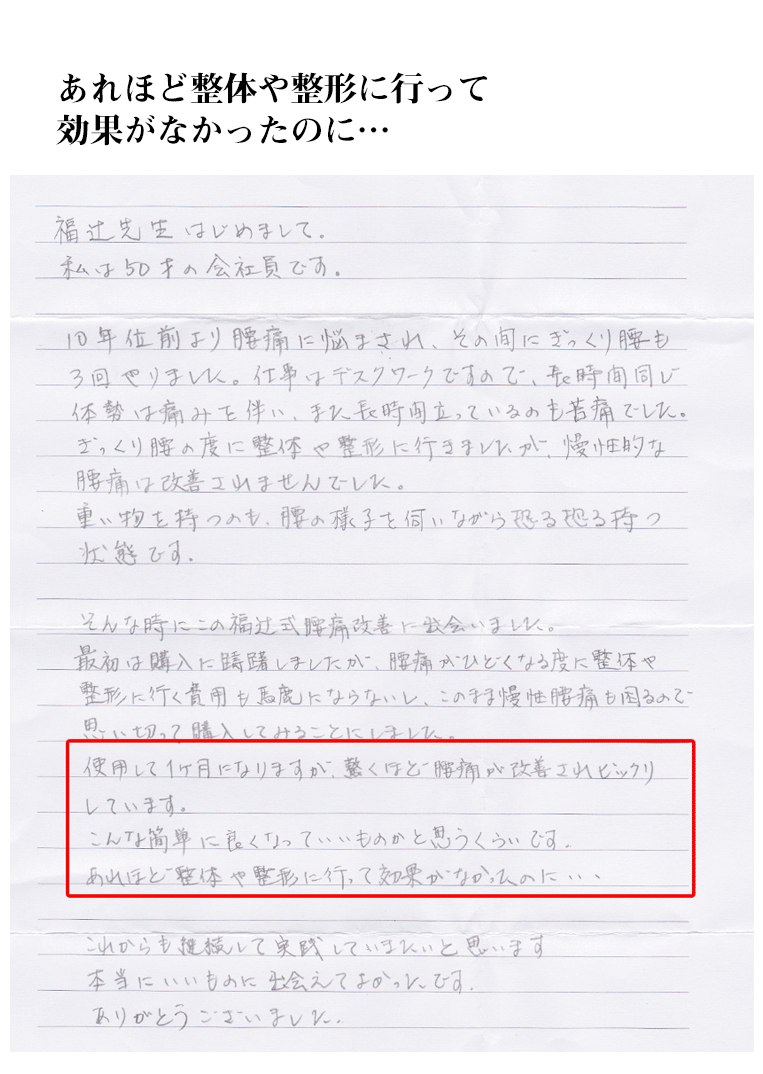 あれほど整体や整形に行って
効果がなかったのに…
福辻先生はじめまして。
私は50才の会社員です。
10年位前より腰痛に悩まされ、その間にぎっくり腰も
3回やりました。仕事はデスクワークですので、長時間同じ
体勢は痛みを伴い、また長時間立っているのも苦痛でした。
ぎっくり腰の度に整体や整形に行きましたが、慢性的な
腰痛は改善されませんでした。
重い物を持つのも、腰の様子を伺いながら恐る恐る持つ
状態です。
そんな時にこの福辻式腰痛改善に出会いました。
最初は購入に躊躇しましたが、腰痛がひどくなる度に整体や
整形に行く費用も馬鹿にならないし、このまま慢性腰痛も困るので
思い切って購入してみることにしました。
使用して1ヶ月になりますが、驚くほど腰痛が改善されビックリ
しています。
こんな簡単に良くなっていいものかと思うくらいです。
あれほど整体や整形に行って効果がなかったのに・・・
これからも継続して実践していきたいと思います
本当にいいものに出会えてよかったです。
ありがとうございました。